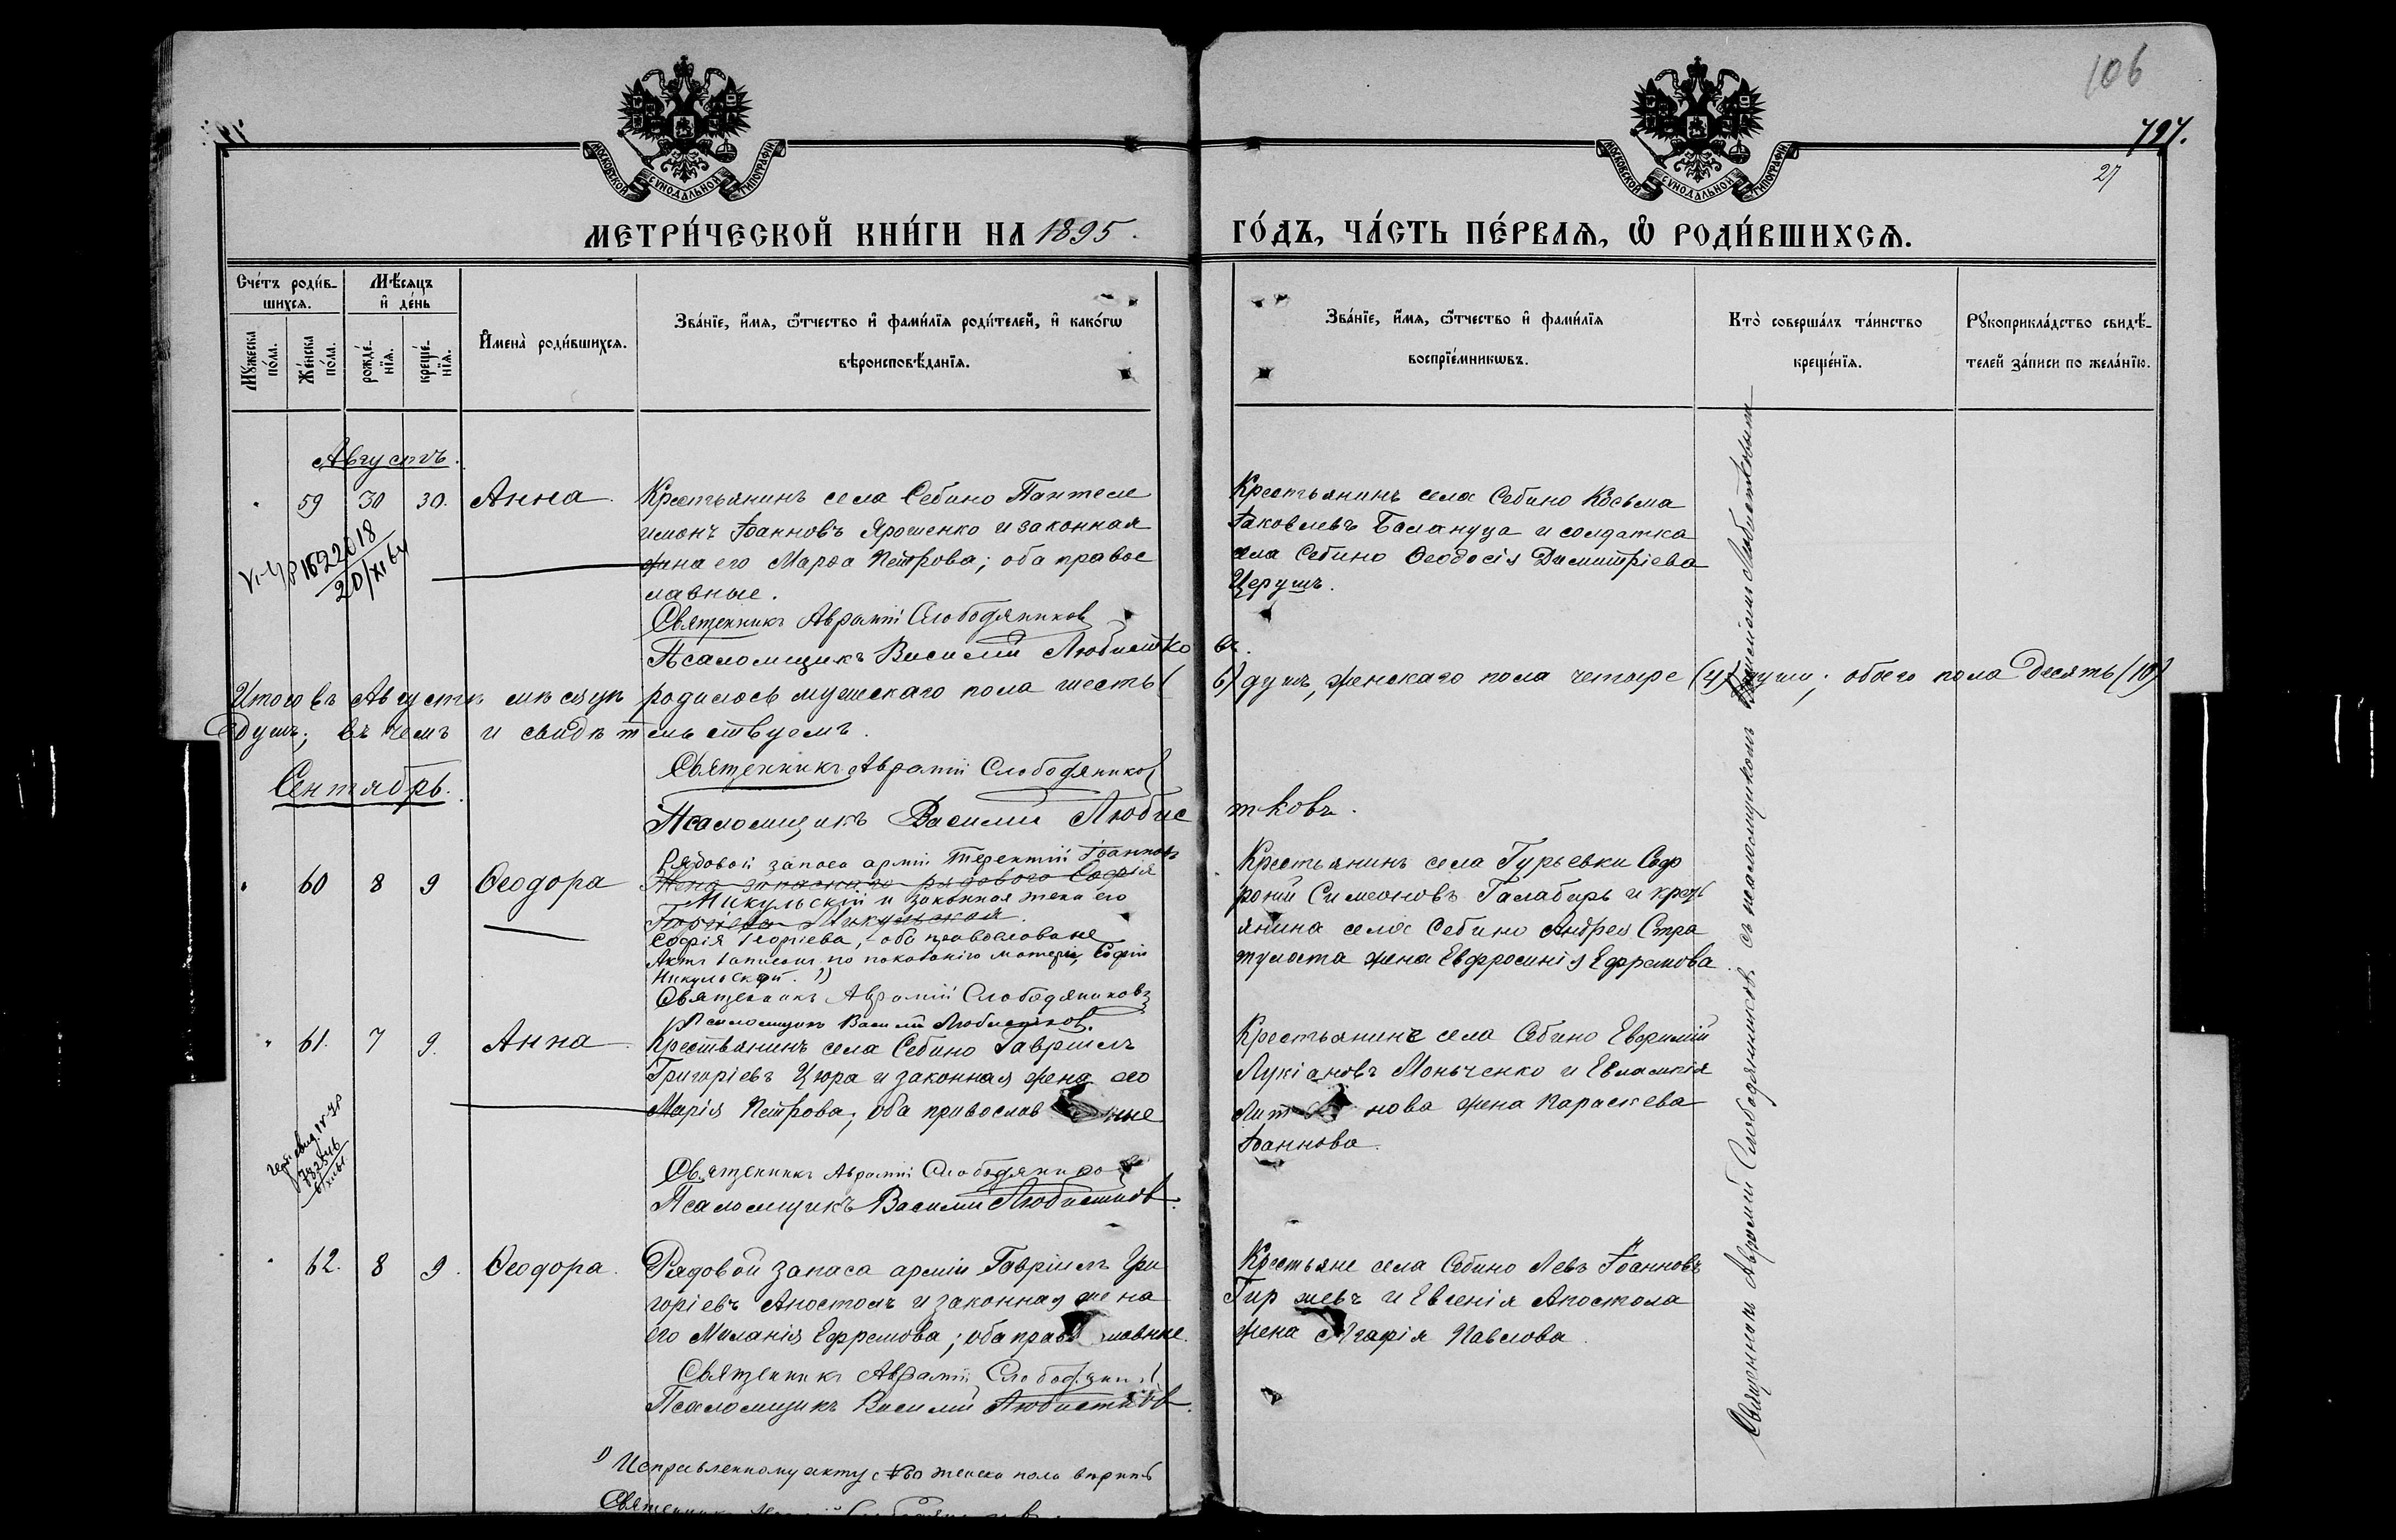 106
797.
27
МОСКОВСКОЙ СѴНОДАЛЬНОЙ ТИПОГРАФІИ
МОСКОВСКОЙ СѴНОДАЛЬНОЙ ТИПОГРАФІИ
МЕТРИ́ЧЕСКОЙ КНИ́ГИ НА 1895.
ГО́ДЪ, ЧА́СТЬ ПЕ́РВАѦ, Ѽ РОДИ́ВШИХСѦ.
Сче́тъ роди́в-
шихсѧ.
Мѣ́сѧцъ
и҆ де́нь
Мꙋ́жеска
по́ла.
Же́нска
по́ла.
рожде́-
нїѧ.
креще́-
нїѧ.
И҆мена̀ роди́вшихсѧ.
Зва́нїе, и҆́мѧ, ѻ҆́тчество и҆ фами́лїѧ роди́телей, и҆ како́гѡ
вѣроисповѣ́данїѧ.
Зва́нїе, и҆́мѧ, ѻ҆́тчество и҆ фами́лїѧ
воспрїе́мникѡвъ.
Кто̀ соверша́лъ та́инство
креще́нїѧ.
Рꙋкоприкла́дство свидѣ́-
телей за́писи по жела́нїю.
Августъ.
59 30 30. Анна.
Крестьянинъ села Себино Пантеле
имонъ Іоанновъ Ярошенко и законная
жена его Марѳа Петрова; оба правос
лавные.
Священникъ Аврамій Слободяников
Псаломщикъ Василій Любистко
въ.
Крестьянинъ села Себино Косьма
Іаковлевъ Балануца и солдатка
села Себино Ѳеодосія Димитріева
Церушъ.
20/XI 64
Итого въ Августѣ мѣсяцѣ родилось мужескаго пола шесть (6) душъ, женскаго пола четыре (4) души; обоего пола десять (10)
душъ; въ чемъ и свидѣтельствуемъ.
Священникъ Аврамій Слободяников
Сентябрь.
Псаломщикъ Василій Любис
тковъ.
60 8 9 Ѳеодора
Рядовой запаса арміи Терентій Іоанновъ
Жена запаснаго рядового Софія
Микульскій и законная жена его
Георгіева Микульская.
Софія Георгіева, оба православные
Актъ записанъ по показанію матери, Софіи
Микульской. 1)
Священникъ Аврамій Слободяниковъ
Псаломщикъ Василій Любистков.
Крестьянинъ села Гурьевки Соф
роній Симеоновъ Галабирь и крест
янина села Себино Андрея Стра
тулата жена Евфросинія Ефремова.
61. 7 9. Анна
Крестьянинъ села Себино Гавріилъ
Григоріевъ Цюра и законная жена его
Марія Петрова, оба православные
Священникъ Аврамій Слободяников
Псаломщикъ Василій Любистков.
Крестьянинъ села Себино Евфимій
Лукіановъ Моньченко и Евлампія
нова жена Параскева
Іоаннова.
62. 8 9. Ѳеодора.
Рядовой запаса арміи Гавріилъ Гри
горіевъ Апостолъ и законная жена
его Миланія Ефремова; оба православные.
Священникъ Аврамій Слободяник
Псаломщикъ Василій Любистков.
Крестьяне села Себино Левъ Іоанновъ
и Евгенія Апостола
жена Агафія Павлова.
Священникъ Аврамій Слободяниковъ съ псаломщикомъ Василіемъ Любистковымъ
1) Исправленному акту с №60 женска пола вѣрить
Священникъ